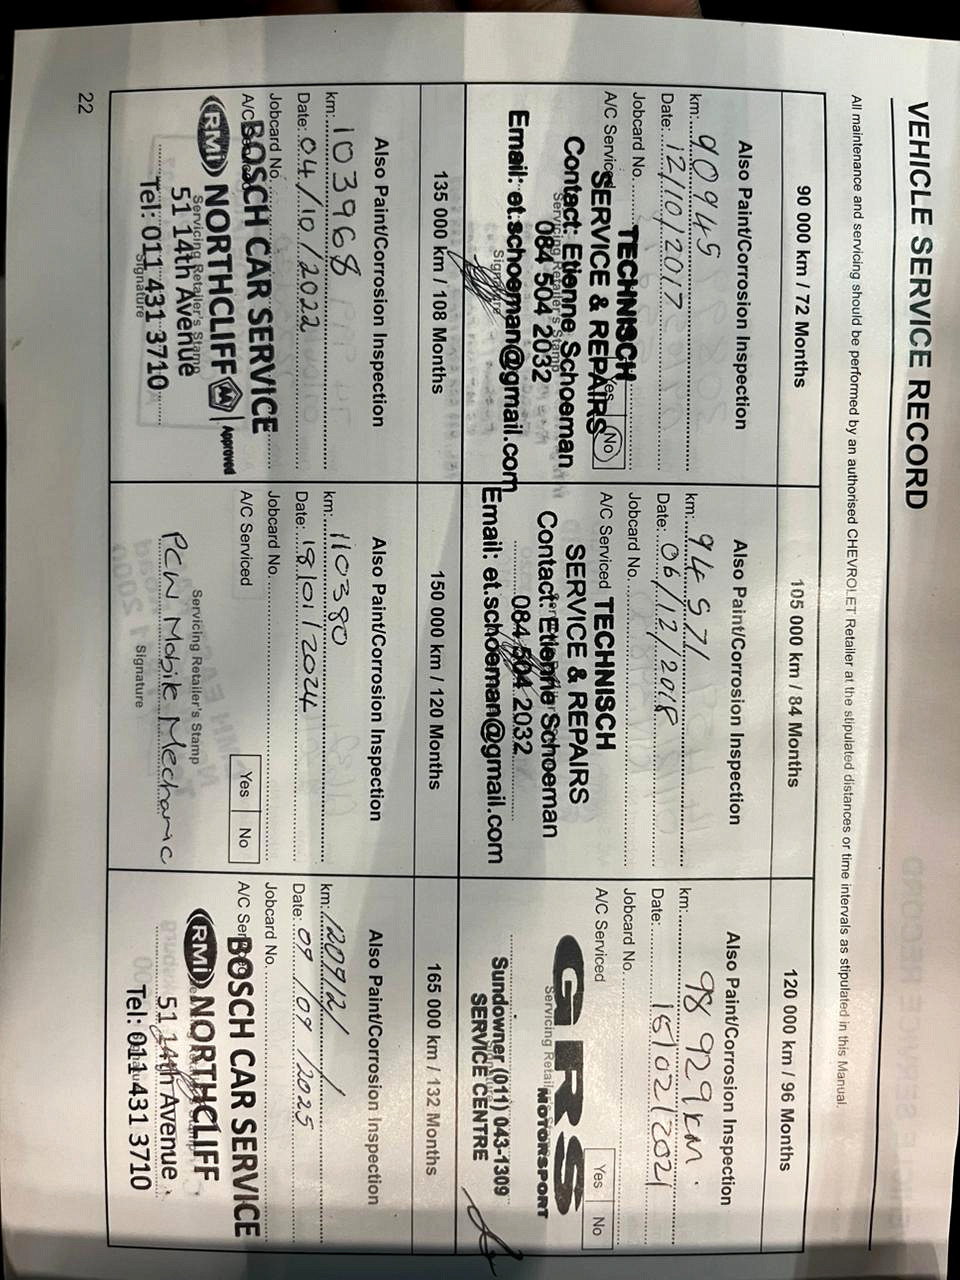 VEHICLE SERVICE RECORD
All maintenance and servicing should be performed by an authorised CHEVROLET Retailer at the stipulated distances or time intervals as stipulated in this Manual.
90 000 km / 72 Months
Also Paint/Corrosion Inspection
km: 90949
Date: 12/10/2017
Jobcard No.
A/C Serviced
Yes No
TECHNISCH
SERVICE & REPAIRS
Servicing Retailer's Stamp
Contact: Etienne Schoeman
084 504 2032
Signature
Email: et.schoeman@gmail.com
105 000 km / 84 Months
Also Paint/Corrosion Inspection
km: 94571
Date: 06/12/2018
Jobcard No.
A/C Serviced
TECHNISCH
SERVICE & REPAIRS
Contact: Etienne Schoeman
084 504 2032
Email: et.schoeman@gmail.com
120 000 km / 96 Months
Also Paint/Corrosion Inspection
km: 98 929 KM.
Date: 15/02/2021
Jobcard No.
A/C Serviced
Yes No
GRS
MOTORSPORT
Servicing Retailer's
Sundowner (011) 043-1309
SERVICE CENTRE
135 000 km / 108 Months
Also Paint/Corrosion Inspection
km: 103968
Date: 04/10/2022
Jobcard No.
A/C
BOSCH CAR SERVICE
RMi NORTHCLIFF M Approved
Servicing Retailer's Stamp
51 14th Avenue
Signature
Tel: 011 431 3710
150 000 km / 120 Months
Also Paint/Corrosion Inspection
km: 110380
Date: 18/01/2024
Jobcard No.
A/C Serviced
Yes No
Servicing Retailer's Stamp
PCW Mobile Mechanic
Signature
165 000 km / 132 Months
Also Paint/Corrosion Inspection
km: 120912
Date: 09/09/2025
Jobcard No.
A/C Serviced
BOSCH CAR SERVICE
RMi NORTHCLIFF
51 14th Avenue
Tel: 011 431 3710
22